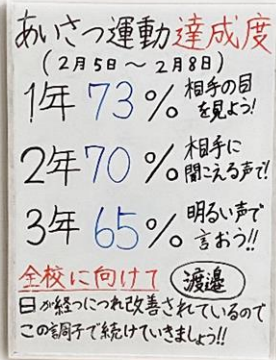 あいさつ運動達成度
(2月5日～2月8日)
1年 73% 相手の目を見よう!
2年 70% 相手に聞こえる声で!
3年 65% 明るい声で言おう!!
全校に向けて 渡邉
日が経つにつれ改善されているので
この調子で続けていきましょう!!